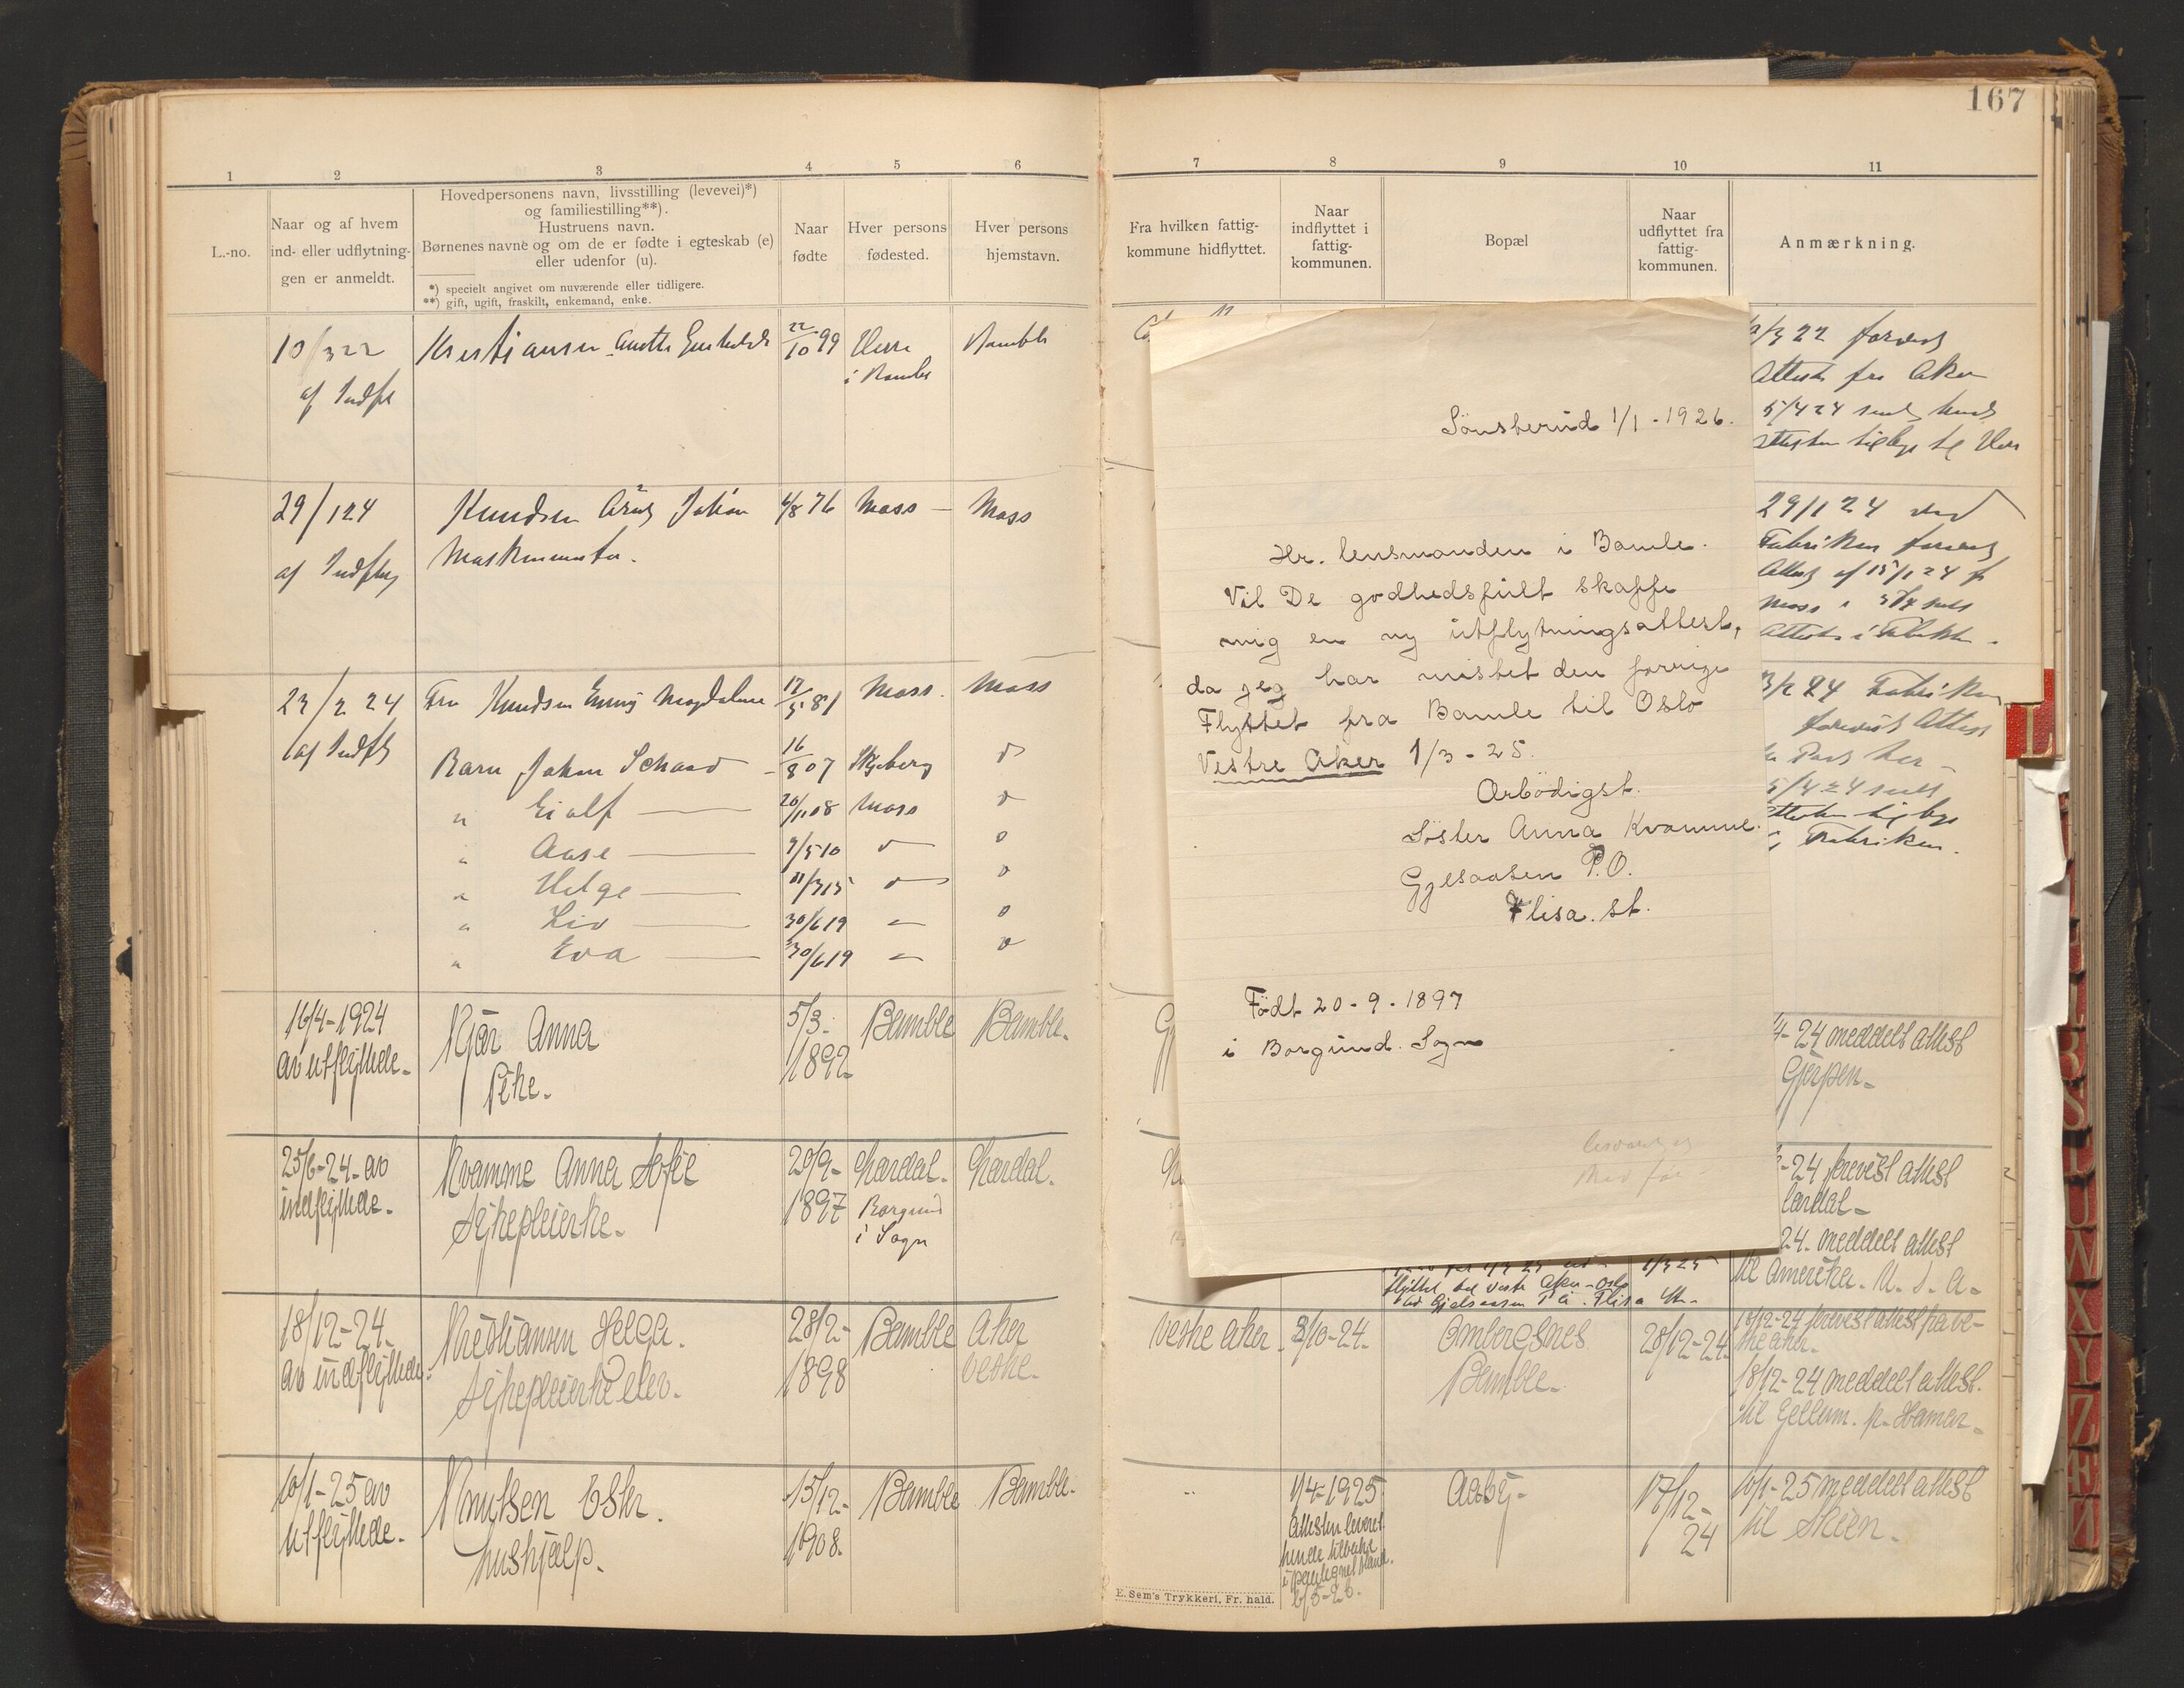 167
1 2 3 4 5 6
L.-no.
Naar og af hvem
ind- eller udflytnin-
gen er anmeldt.
Hovedpersonens navn, livsstilling (levevei)*)
og familiestilling**).
Hustruens navn.
Børnenes navne og om de er fødte i egteskab (e)
eller udenfor (u).
*) specielt angivet om nuværende eller tidligere.
**) gift, ugift, fraskilt, enkemand, enke.
Naar
fødte
Hver persons
fødested.
Hver persons
hjemstavn.
10/3 22
af Indfl
Kristiansen Anette
22/10 99
Herre
i Bamble
Bamble
29/1 24
af Indflg
Knudsen Johan
4/8 76
Moss
Moss
23/2 24
af Indfl
Fru Knudsen Magdalene
17/5 81
Moss
Moss
Barn Johan
16/8 07
Skjeberg
do
" Eialf
20/11 08
Moss
do
" Aase
9/5 10
do
do
" Helge
11/3 15
do
do
" Liv
30/6 19
"
do
" Eva
30/6 19
"
do
16/4-1924
av utflyttede-
Kjær Anna
Pike-
5/3-
1892-
Bamble
Bamble-
25/6-24-av
indflyttede-
Kvamme Anna Sofie
Sykepleierske-
20/9-
1897
Lærdal-
Borgund
i Sogn
Lærdal-
18/12-24-
av indflyttede-
Kristiansen Helga-
Sykepleierske elev-
28/2-
1898
Bamble
Aker
vestre-
10/1-25 av
utflyttede-
Knutsen Ester.
hushjælp.
15/12-
1908-
Bamble
Bamble-
7 8 9 10 11
Fra hvilken fattig-
kommune hidflyttet.
Naar
indflyttet i
fattig-
kommunen.
Bopæl
Naar
udflyttet fra
fattig-
kommunen.
Anmærkning.
3 22 forevist
Attest fra Aker
5/4 24 sendt hende
attesten tilbage til Herre
29/1 24 ved
Fabriken forevist
Attest af 15/1 24 fr
Moss
24 Fabriken
forevist Attest
5/4 24 sendt
attesten tilbage
Fabriken.
4-24 meddelt attest
Gjerpen-
-24 forevist attest
Lærdal-
24- meddelt attest
til Amerika. U. S. A-
flyttet til vestre Aker-Oslo
1/3 25
Vestre Aker-
3/10-24-
Ombergsnes
Bamble-
28/12-24
18/12-24 forevist attest fra ve-
stre aker-
18/12-24 meddelt attest.
til
p- Hamar-
1/4-1925
attesten leveret
hende tilbake
6/5-26.
Aaby-
17/12-
24
10/1-25 meddelt attest
til Skien-
E. Sem's Trykkeri, Fr. hald.
Sönsterud 1/1-1926.
Hr. lensmanden i Bamle.
Vil De godhedsfult skaffe
mig en ny utflytningsattest,
da jeg har mistet den forrige
Flyttet fra Bamle til Oslo
Vestre Aker 1/3-25.
Ærbödigst.
Söster Anna Kvamme.
Gjesaasen P.O.
Flisa. st.
Födt 20-9-1897
i Borgund. Sogn
L
S
T
U
W
X
Y
Z